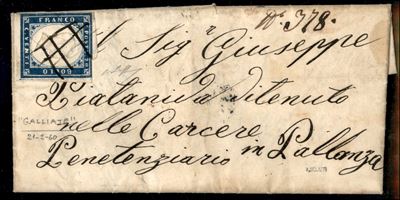 N. 378.
FRANCO
C. VENTI
BOLLO
Il Sig.r Giuseppe
Piatanida ditenuto
nelle Carcere
Penetenziario in Pallanza
"GALLIATE"
21-2-60